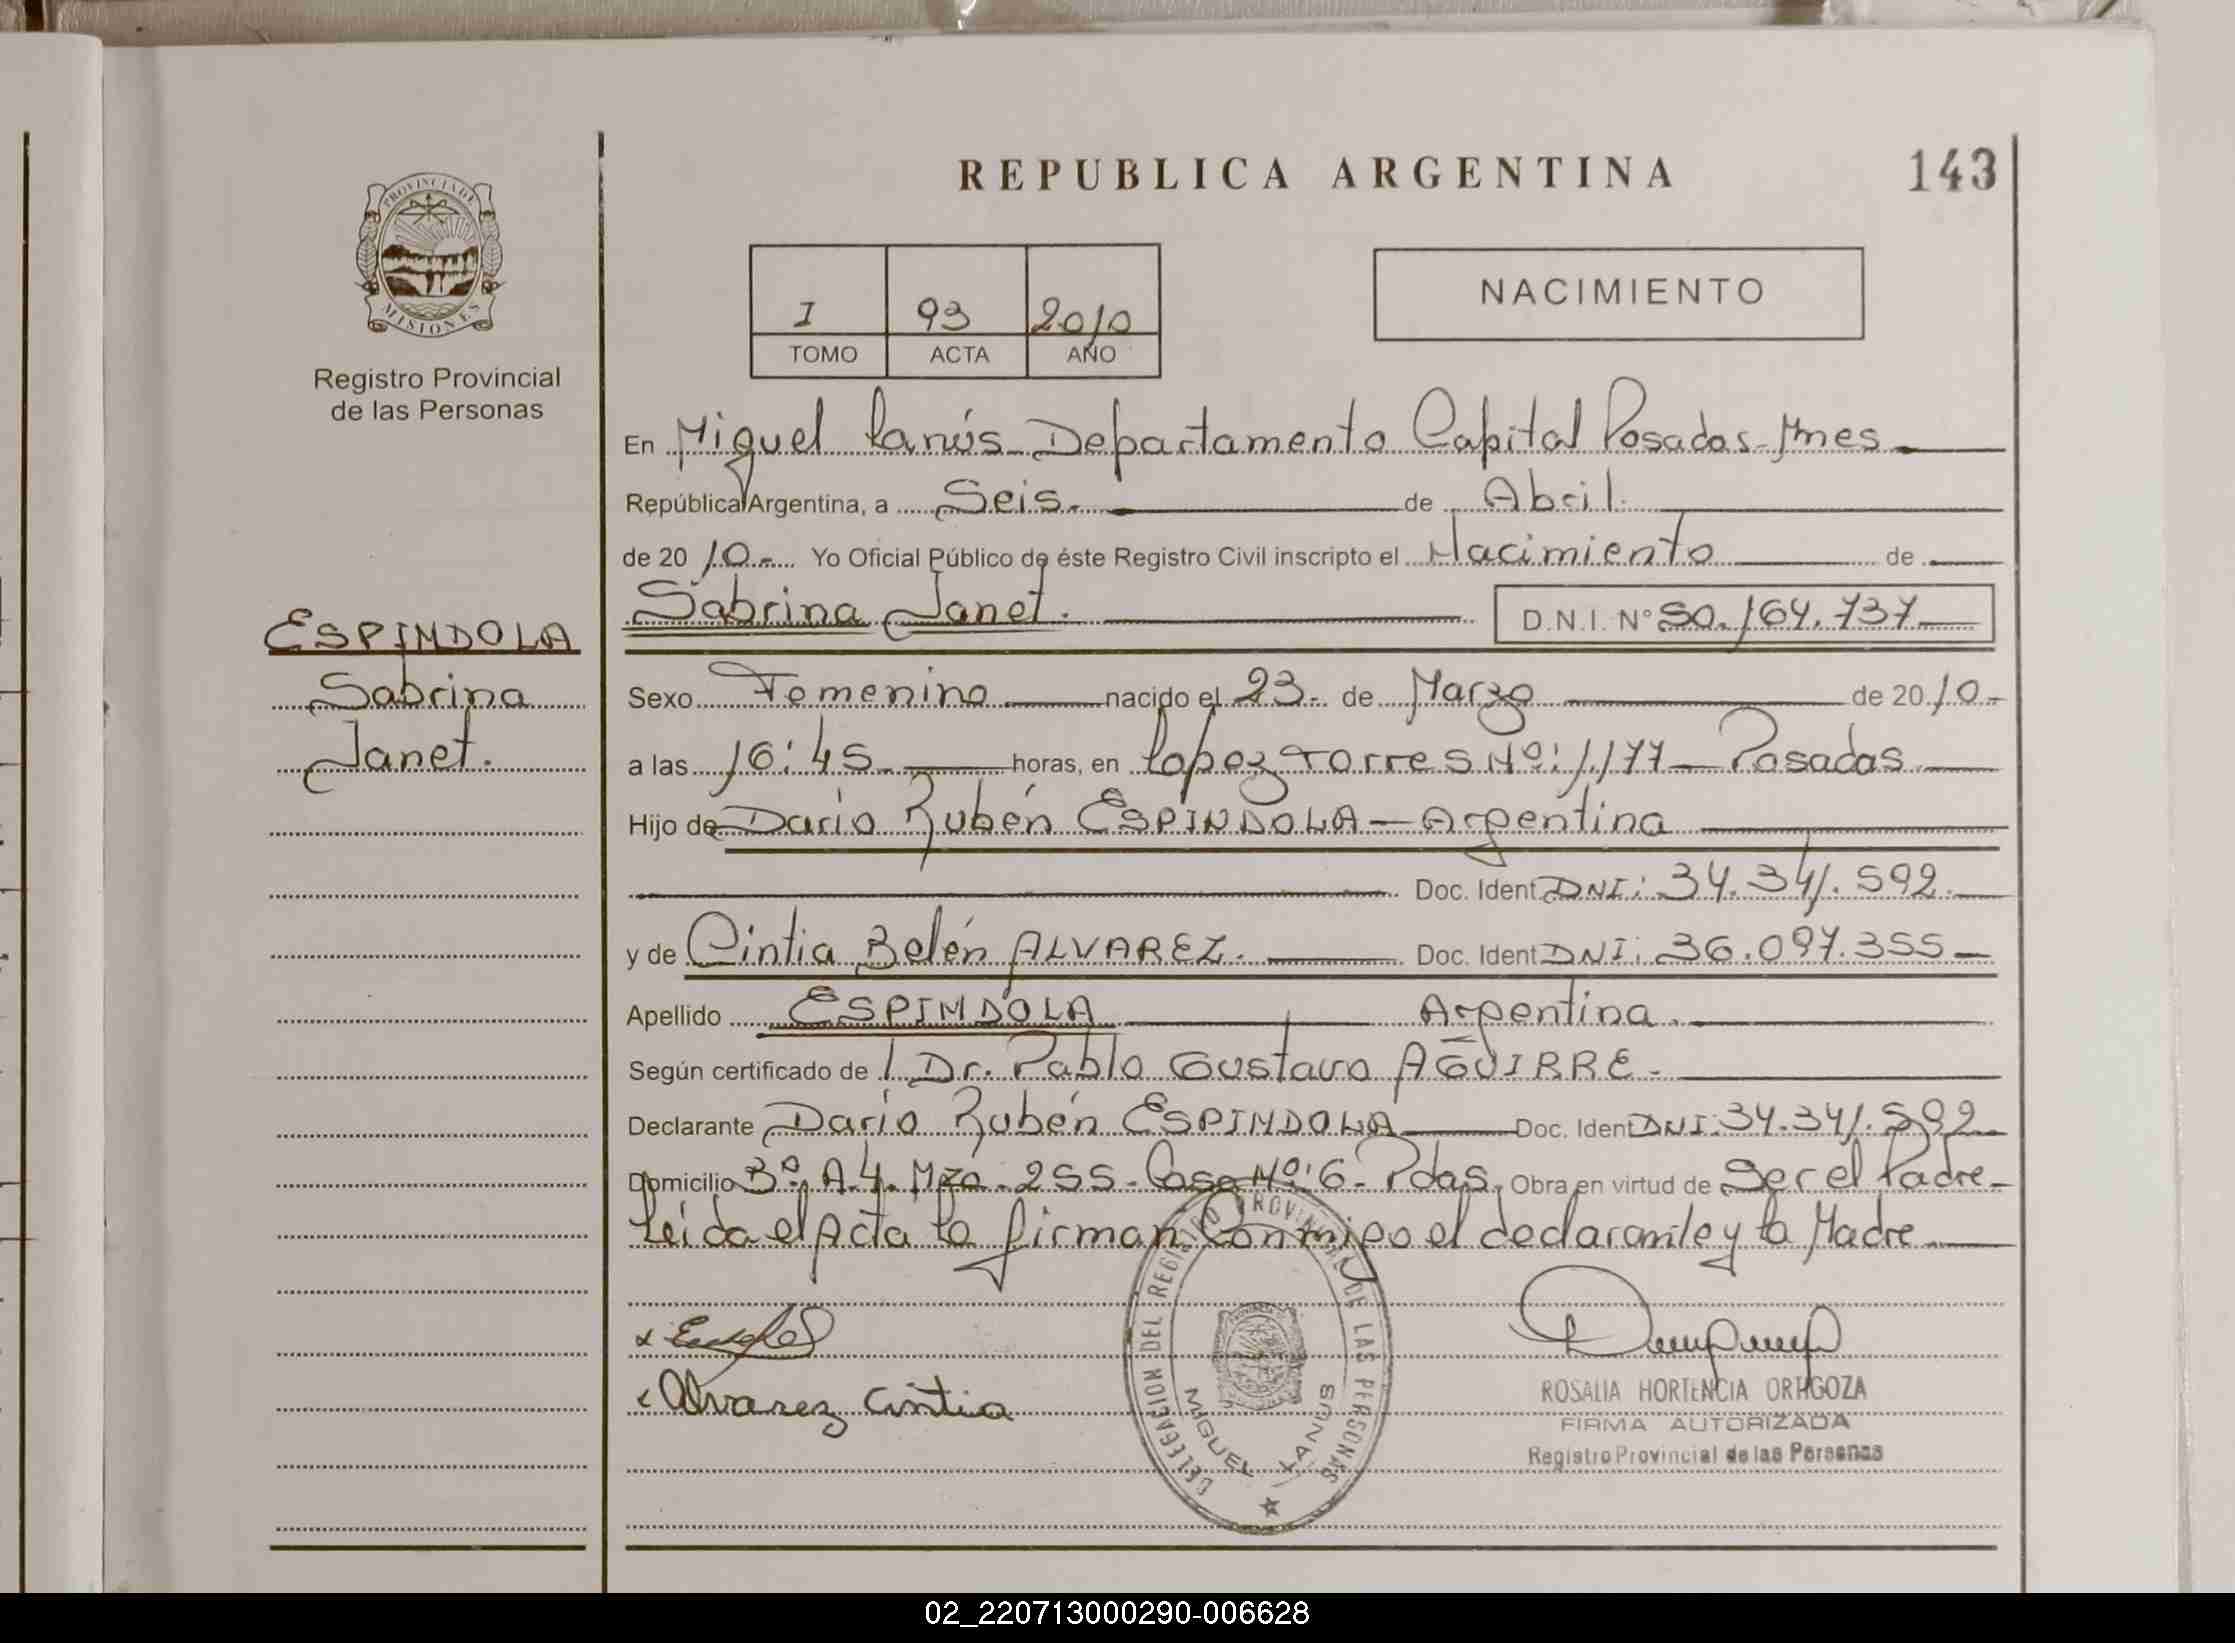 REPUBLICA ARGENTINA
143
PROVINCIA DE
MISIONES
Registro Provincial
de las Personas
I 93 2010
TOMO ACTA AÑO
NACIMIENTO
En Miguel Lanús - Departamento Capital Posadas - Mnes -
República Argentina, a Seis - de Abril.
de 20 10.- Yo Oficial Público de éste Registro Civil inscripto el Nacimiento de
Sabrina Janet. D.N.I. Nº 50.164.737
ESPINDOLA
Sabrina
Janet.
Sexo Femenino nacido el 23 - de Marzo de 2010-
a las 16:45 horas, en Lopez Torres Nº: 1.177 - Posadas
Hijo de Dario Rubén ESPINDOLA - Argentina
Doc. Ident DNI: 34.341.592
y de Cintia Belén ALVAREZ. Doc. Ident DNI: 36.097.355
Apellido ESPINDOLA Argentina.
Según certificado de l Dr. Pablo Gustavo AGUIRRE -
Declarante Dario Rubén ESPINDOLA Doc. Ident DNI: 34.341.592
Domicilio Bº. A.4. Mza. 255 - Casa Nº: 6 - Pdas. Obra en virtud de Ser el Padre -
Leida el Acta la firman Conmigo el declarante y la Madre
x
x Alvarez Cintia
DELEGACION DEL REGISTRO PROVINCIAL DE LAS PERSONAS
MIGUEL LANUS
ROSALIA HORTENCIA ORTIGOZA
FIRMA AUTORIZADA
Registro Provincial de las Personas
02_220713000290-006628